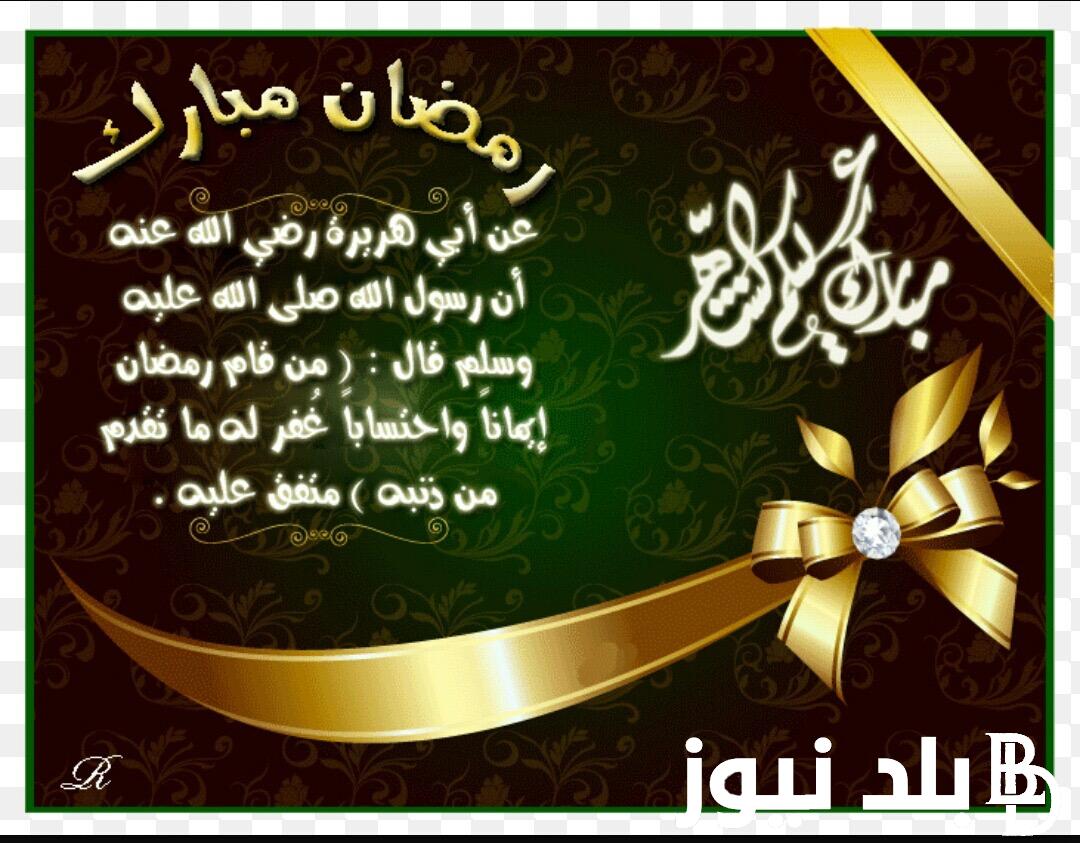 رمضان مبارك
عن أبي هريرة رضي الله عنه
أن رسول الله صلى الله عليه
وسلم قال : ( من قام رمضان
إيماناً واحتساباً غُفر له ما تقدم
من ذنبه ) متفق عليه .
مبارك عليكم الشهر
R
بلد نيوز